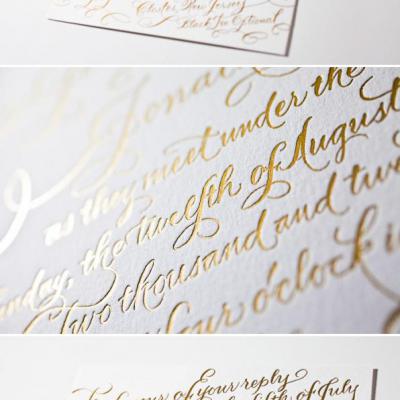 Closter, New Jersey
Black Tie Optional
Jonat
as they meet under the
Sunday, the twelfth of August
Two thousand and twe
four o'clock i
The favour of your reply
twelfth of July